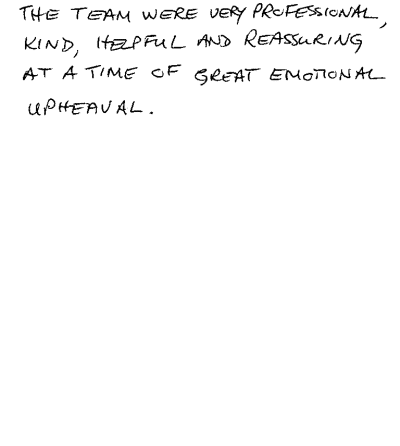 THE TEAM WERE VERY PROFESSIONAL,
KIND, HELPFUL AND REASSURING
AT A TIME OF GREAT EMOTIONAL
UPHEAVAL.